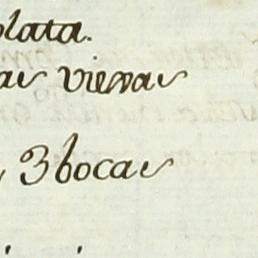 plata.
as viexas
, 3 bocas